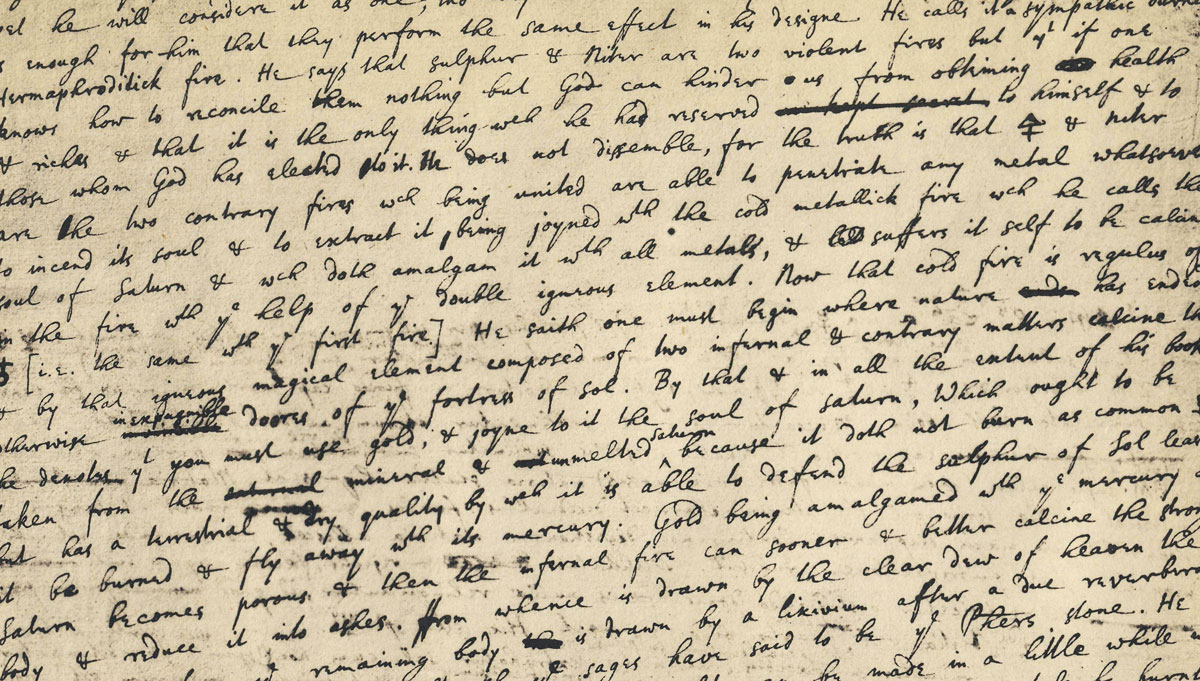 yet he will considere it as one,
s enough for him that they perform the same effect in his designe. He calls it a sympathic
Hermaphroditick fire. He says that sulphur & Niter are two violent fires but yt if one
knows how to reconcile them nothing but God can hinder us from obteining health
& riches & that it is the only thing wch he had reserved kept secret to himself & to
those whom God has elected to it. He does not dissemble, for the truth is that 🜍 & niter
are the two contrary fires wch being united are able to penetrate any metal whatsoeve
to incend its soul & to extract it, being joyned wth the cold metallick fire wch he calls the
soul of Saturn & wch doth amalgam it wth all metals, & suffers it self to be calcin
in the fire wth ye help of ye double igneous element. Now that cold fire is regulus of
♄ [i.e. the same wth ye first fire] He saith one must begin where nature ends has ended
& by that igneous magical element composed of two infernal & contrary matters calcine th
otherwise inexpugnible invincible doores of ye fortress of Sol. By that & in all the extent of his book
he denotes yt you must use gold, & joyne to it the soul of Saturn, Which ought to be
taken from the mineral & unmelted Saturn because it doth not burn as common
but has a terrestrial & dry quality by wch it is able to defend the sulphur of Sol leas
it be burned & fly away wth its mercury. Gold being amalgamed wth ye mercury
Saturn becomes porous & then the infernal fire can sooner & better calcine the stron
body & reduce it into ashes. From whence is drawn by the clear dew of heaven the
remaining body is drawn by a lixivium after a due reverbera
sages have said to be ye Phers stone. He
be made in a little while